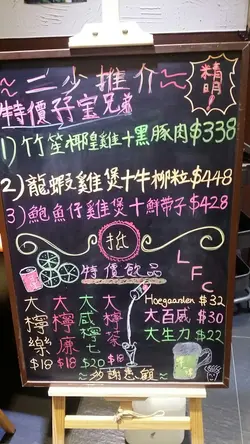 ~二少推介~
精明!
特價孖宝兄弟
1) 竹笙椰皇雞+黑豚肉$338
2) 龍蝦雞煲+牛柳粒$448
3) 鮑魚仔雞煲+鮮帶子$428
特價飲品
LFC
大檸樂 $18
大檸康 $18
大咸檸七 $20
大檸茶 $18
Hoegaarden $32
大百威 $30
大生力 $22
~多謝惠顧~